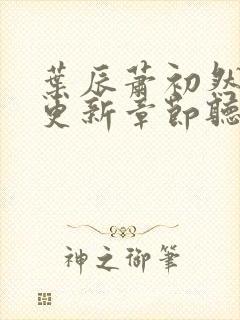 葉辰蕭初然
更新章節聽
神之御筆